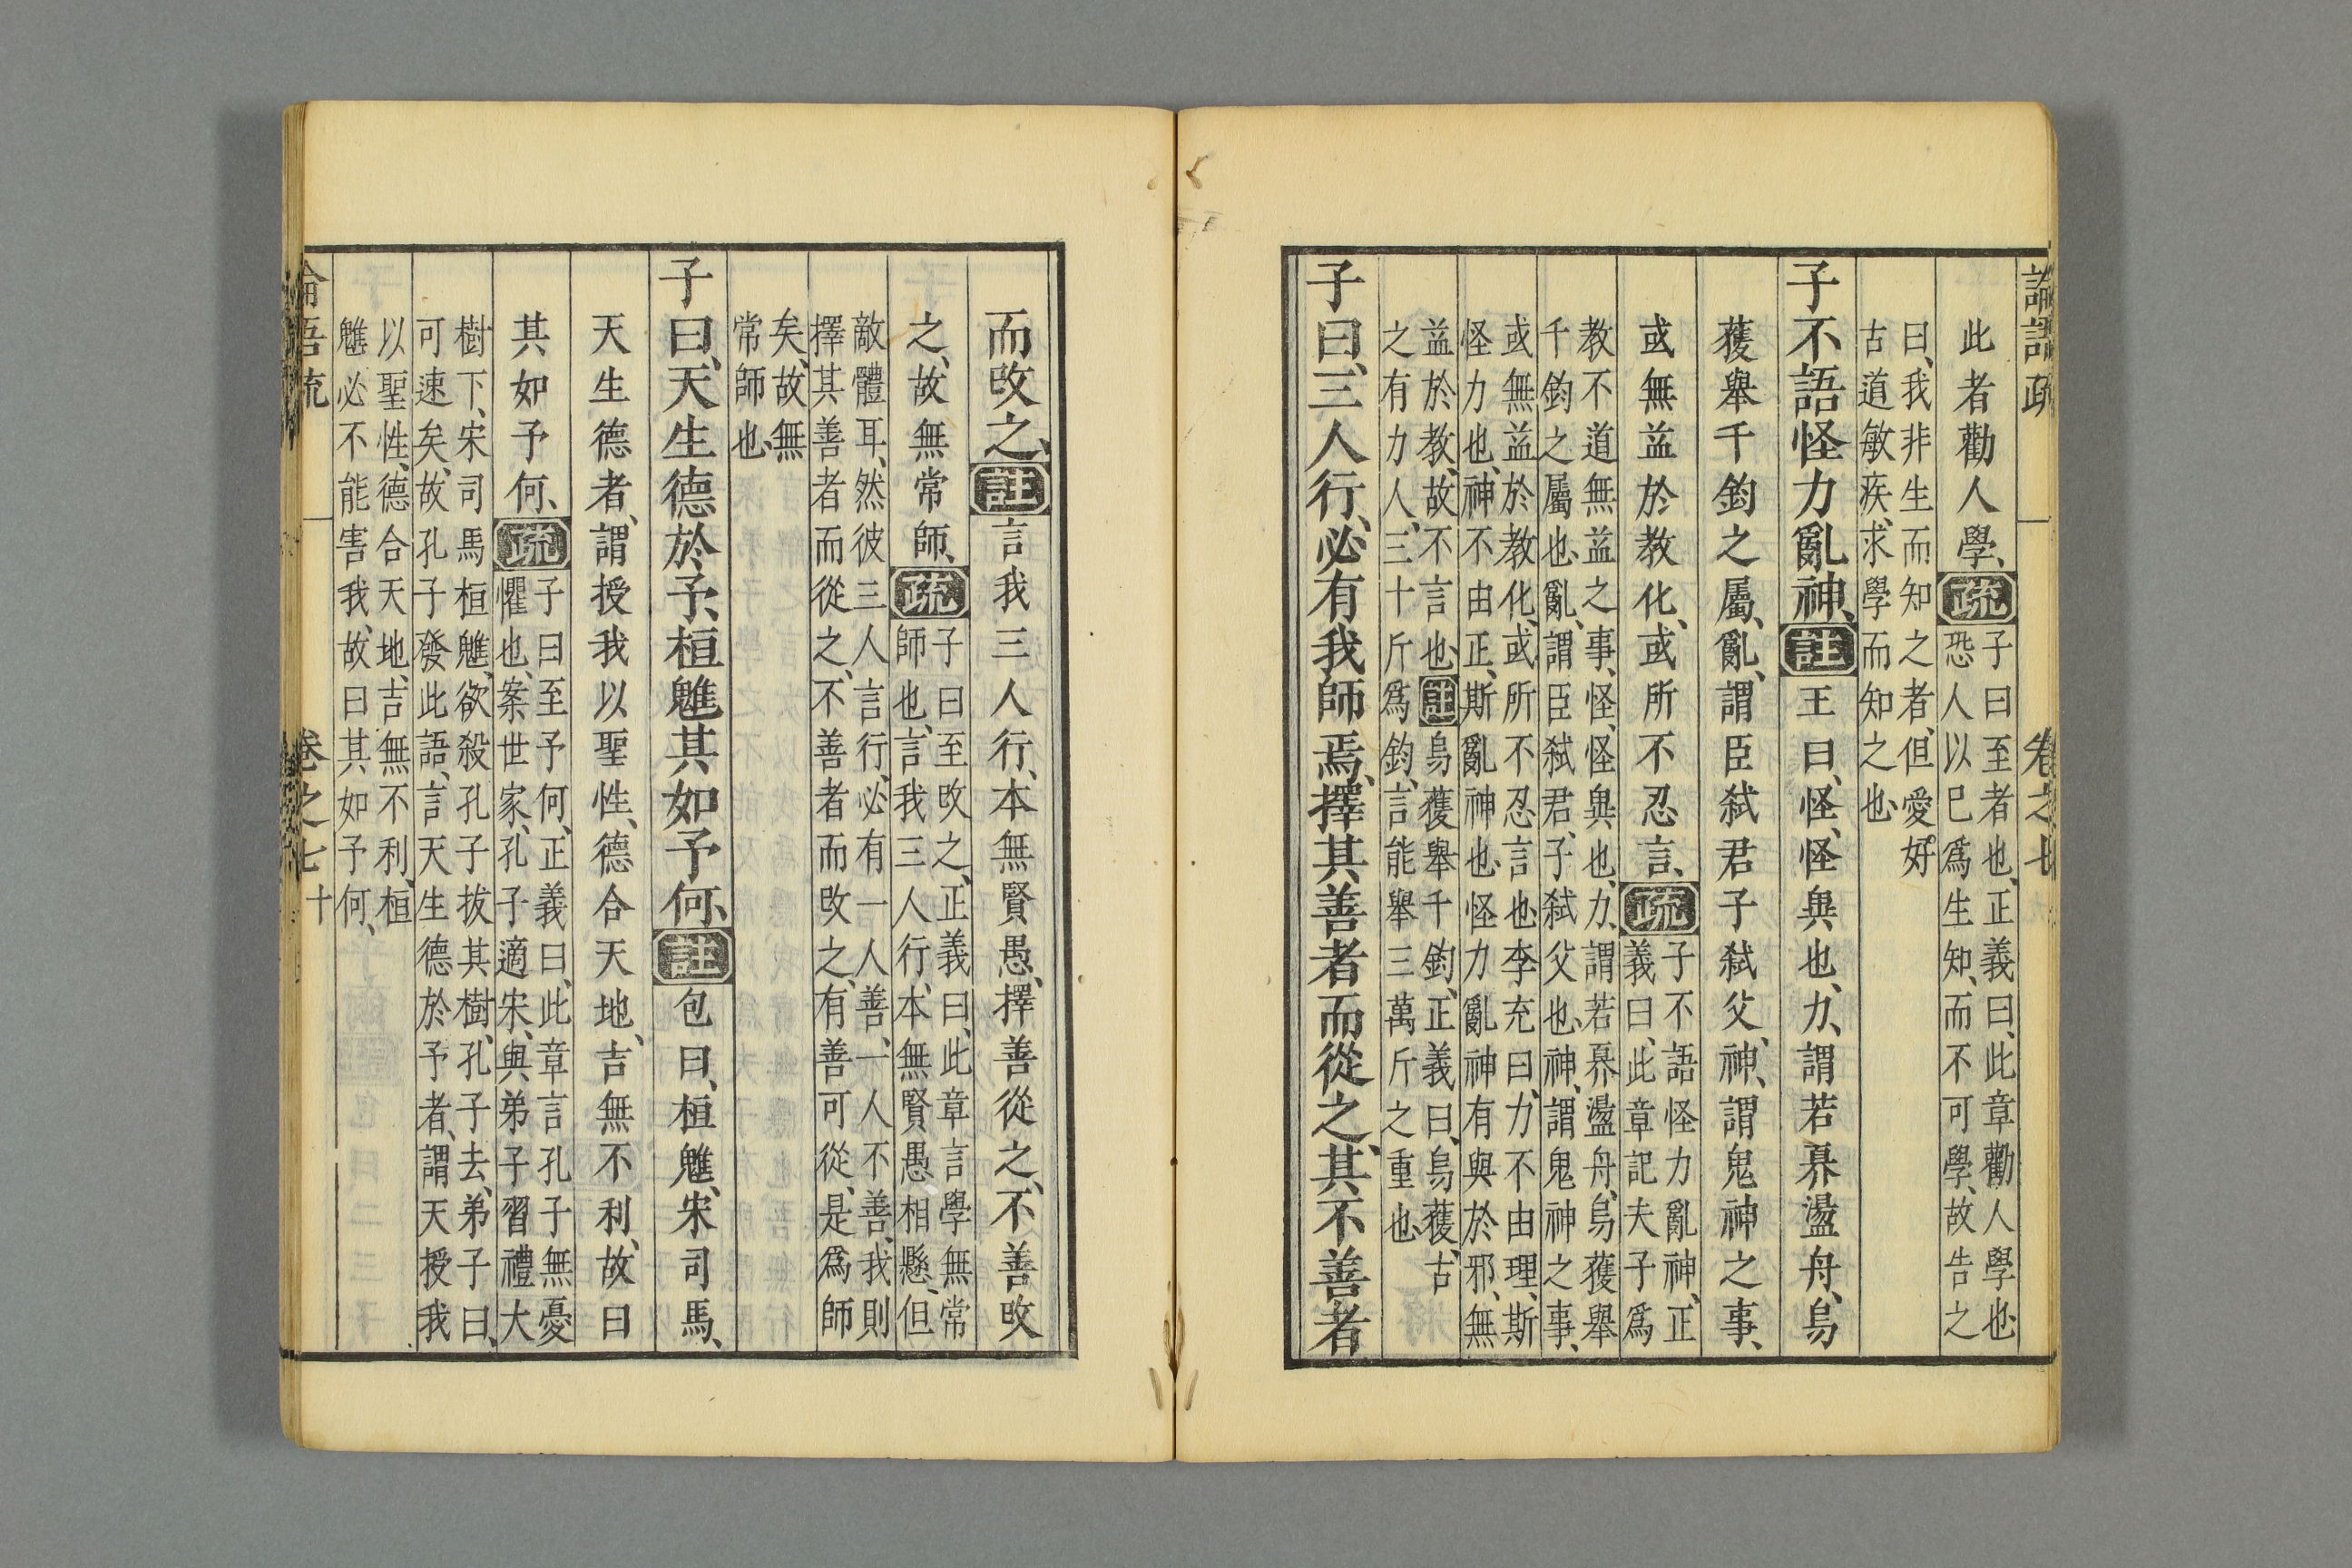 論語疏 卷之七
此者勸人學、疏子曰至者也、正義曰、此章勸人學也
恐人以巳爲生知、而不可學、故告之
曰、我非生而知之者、但愛好
古道敏疾、求學而知之也
子不語怪力亂神、註王曰、怪、怪異也、力、謂若奡盪舟、烏
獲舉千鈞之屬、亂、謂臣弑君子弑父、神、謂鬼神之事、
或無益於教化、或所不忍言、疏子不語怪力亂神、正
義曰、此章記夫子爲
教不道無益之事、怪、怪異也、力、謂若奡盪舟、烏獲舉
千鈞之屬也、亂、謂臣弑君、子弑父也、神、謂鬼神之事、
或無益於教化、或所不忍言也、李充曰、力不由理、斯
怪力也、神不由正、斯亂神也、怪力亂神有與於邪、無
益於教、故不言也、註烏獲舉千鈞、正義曰、烏獲、古
之有力人、三十斤爲鈞、言能舉三萬斤之重也
子曰、三人行、必有我師焉、擇其善者而從之、其不善者
而改之、註言我三人行、本無賢愚、擇善從之、不善改
之、故無常師、疏子曰至改之、正義曰、此章言學無常
師也、言我三人行、本無賢愚相懸、但
敵體耳、然彼三人言行、必有一人善、一人不善、我則
擇其善者而從之、不善者而改之、有善可從、是爲師
矣、故無
常師也
子曰、天生德於予、桓魋其如予何、註包曰、桓魋、宋司馬、
天生德者、謂授我以聖性、德合天地、吉無不利、故曰
其如予何、疏子曰至予何、正義曰、此章言孔子無憂
懼也、案世家、孔子適宋、與弟子習禮大
樹下、宋司馬桓魋、欲殺孔子拔其樹、孔子去、弟子曰、
可速矣、故孔子發此語、言天生德於予者、謂天授我
以聖性、德合天地、吉無不利、桓
魋必不能害我、故曰其如予何、
論語疏 卷之七 十